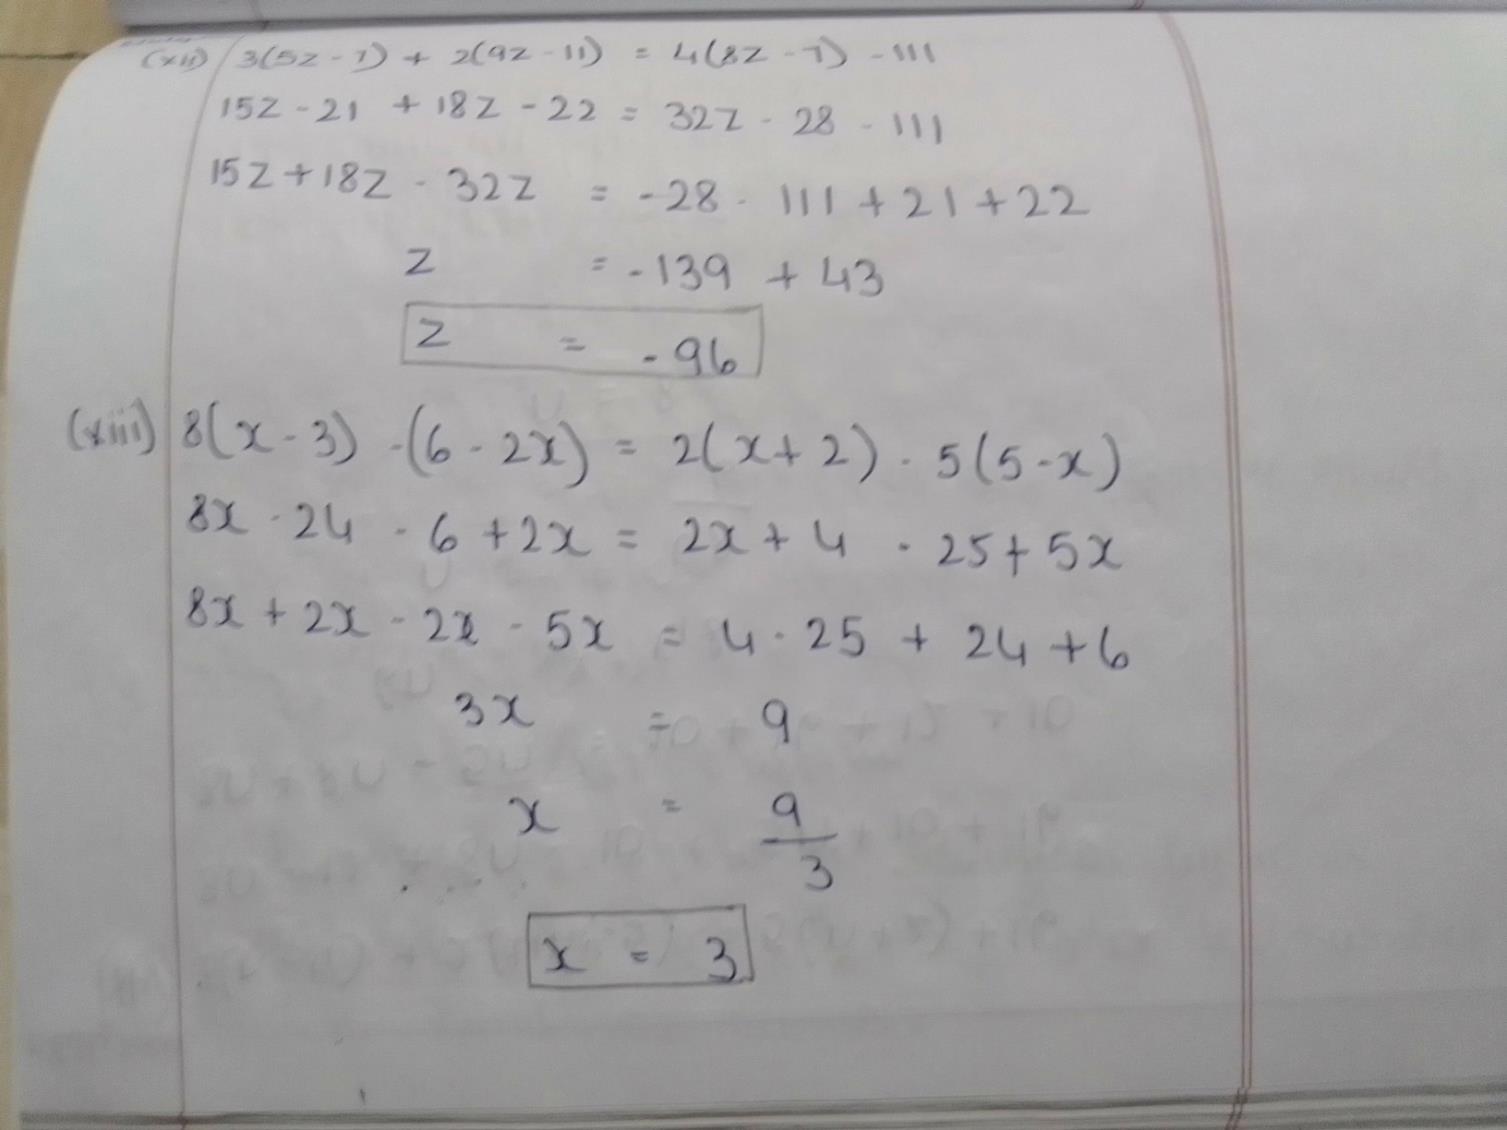 (xii) 3(5z - 7) + 2(9z - 11) = 4(8z - 7) - 111
15z - 21 + 18z - 22 = 32z - 28 - 111
15z + 18z - 32z = -28 - 111 + 21 + 22
z = -139 + 43
z = -96
(xiii) 8(x - 3) - (6 - 2x) = 2(x + 2) - 5(5 - x)
8x - 24 - 6 + 2x = 2x + 4 - 25 + 5x
8x + 2x - 2x - 5x = 4 - 25 + 24 + 6
3x = 9
x = 9/3
x = 3